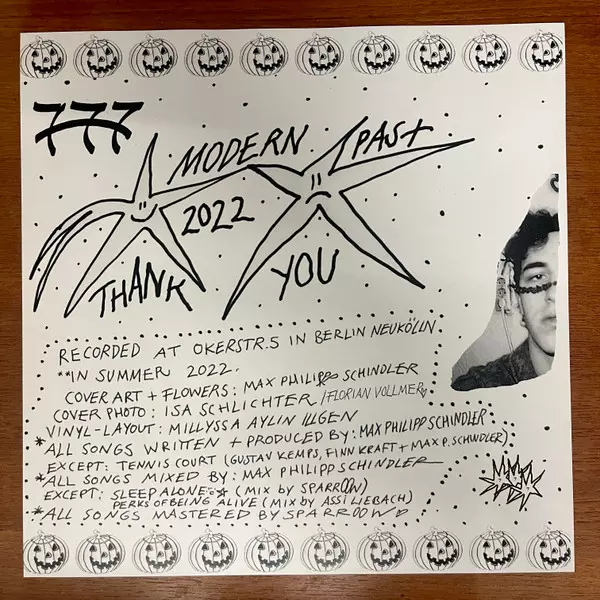 777
MODERN PAST
2022
THANK YOU
RECORDED AT OKERSTR.5 IN BERLIN NEUKÖLLN
**IN SUMMER 2022.
COVER ART + FLOWERS: MAX PHILIPP SCHINDLER
COVER PHOTO: ISA SCHLICHTER /FLORIAN VOLLMER♡
VINYL-LAYOUT: MILLYSSA AYLIN ILLGEN
*ALL SONGS WRITTEN + PRODUCED BY: MAX PHILIPP SCHINDLER
EXCEPT: TENNIS COURT (GUSTAV KEMPS, FINN KRAFT + MAX P. SCHINDLER)
*ALL SONGS MIXED BY: MAX PHILIPP SCHINDLER
EXCEPT: SLEEP ALONE☆ (MIX by SPARROOW)
PERKS OF BEING ALIVE (MIX by ASSI LIEBACH)
*ALL SONGS MASTERED BY SPARROOW♡